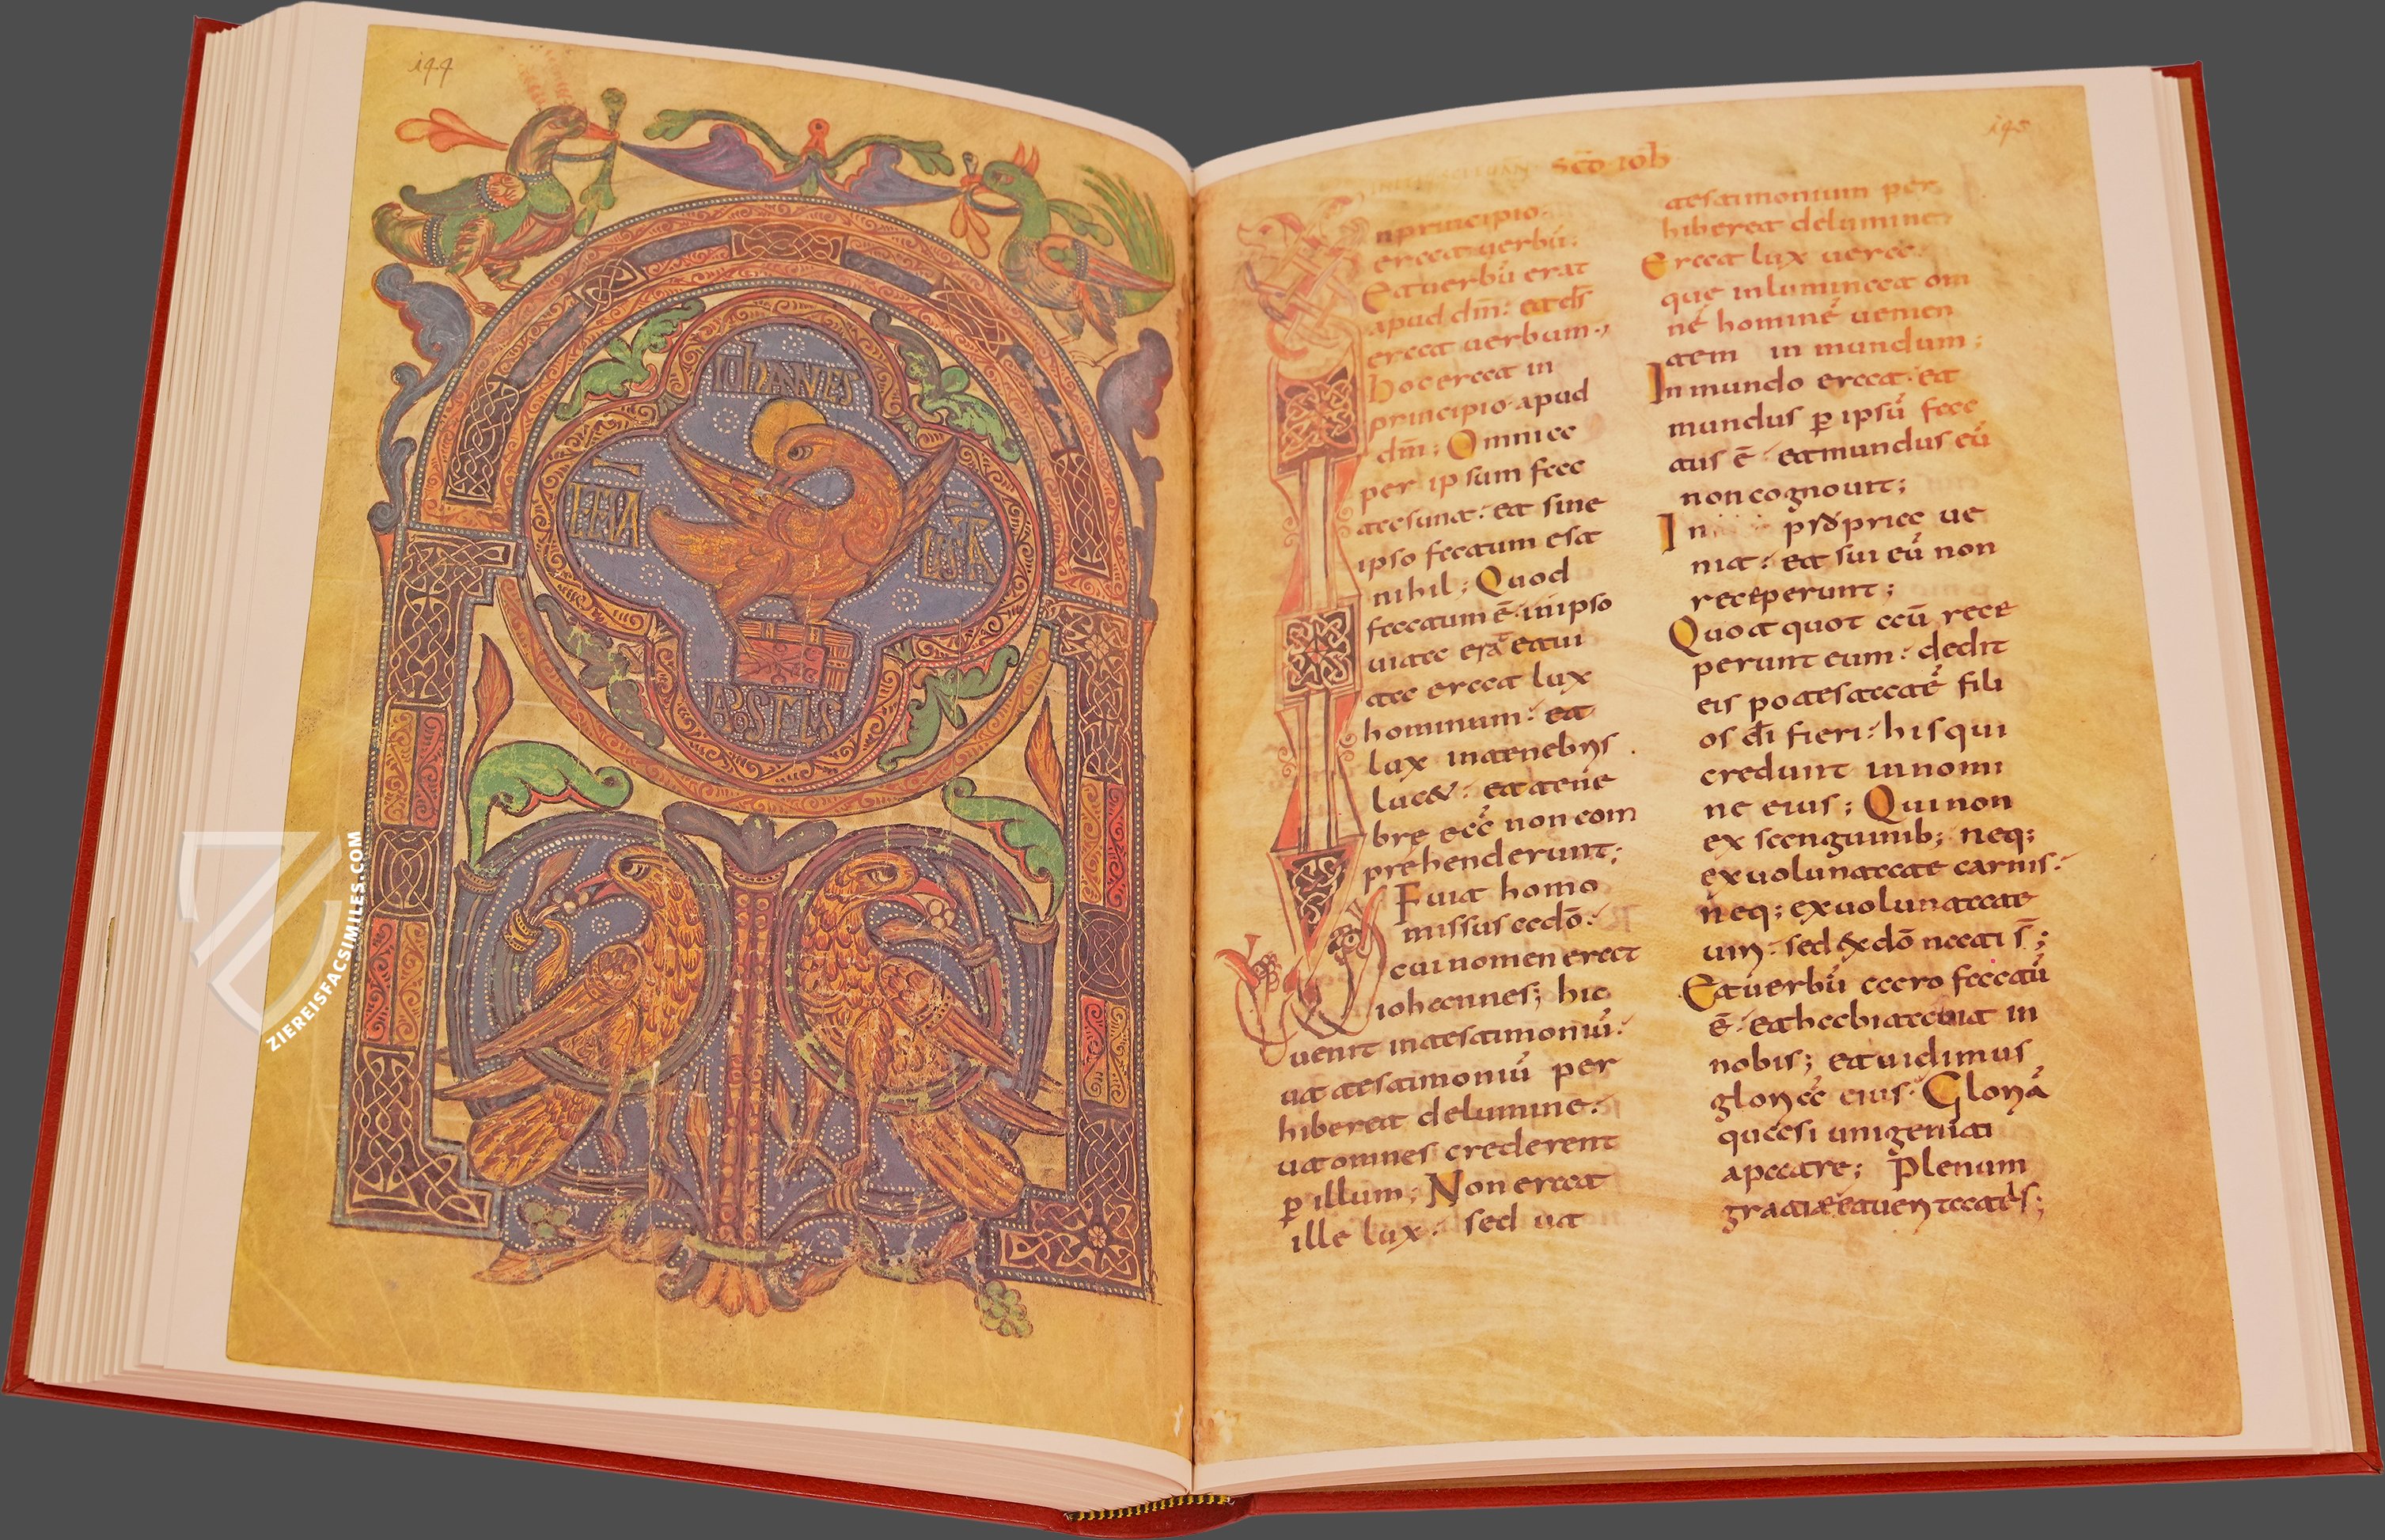 144
IOHANES
IMA
APOSMS
ZIEREISFACSIMILES.COM
145
SCD IOH
nprincipio
erat uerbū:
Etuerbū erat
apud dm̄: et ds̄
erat uerbum.,
hoc erat in
principio apud
dm̄: Omnia
per ipsum fac
tasunt: et sine
ipso factum est
nihil; Quod
factum ē inipso
uita erat etui
ta erat lux
hominum: et
lux intenebris
lucet: et tene
bre eā noncom
prehenderunt;
Fuit homo
missus adō:
cui nomen erat
iohannes; hic
uenit intestimoniū:
ut testimoniū per
hiberet delumine:
utomnes crederent
p illum; Non erat
ille lux: sed ut
testimonium per
hiberet delumine:
Erat lux uera:
que inluminat om
nē hominē uenien
tem in mundum;
Inmundo erat: et
mundus p ipsū fac
tus ē: etmundus eū
non cognouit;
In propria ue
nit: et sui eū non
receperunt;
Quot quot aū rece
perunt eum: dedit
eis potestatē fili
os dī fieri: hisqui
credunt innomi
ne eius; Quinon
ex sanguinib; neq;
exuoluntate carnis:
neq; exuoluntate
uiri: sed exdō nati s̄;
Etuerbū caro factū
ē: ethabitauit in
nobis; etuidimus
gloriā eius: Gloriā
quasi unigeniti
apatre; Plenum
gratiaetueritatis;